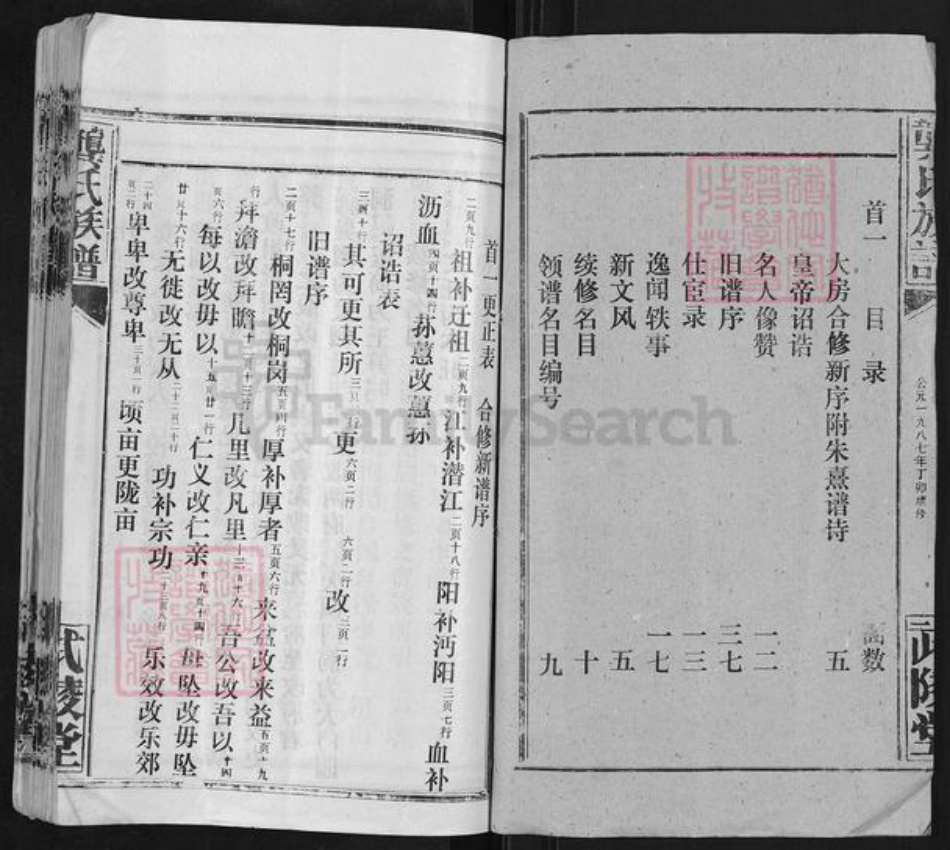 首一 目录
大房合修新序附朱熹谱诗 五
皇帝诏诰
名人像赞 一二
旧谱序 三七
仕宦录 一三
逸闻轶事 一七
新文风 五
续修名目 十
领谱名目编号 九
页数
公元一九八七年丁卯续修
武陵堂
首一更正表 合修新谱序
二页九行 祖补迁祖 二页九行 江补潜江 二页十八行 阳补沔阳 三页七行 血补
沥血 四页十四行 荪蕙改蕙荪
诏诰表
三页十行 其可更其所 三页 行 更 六页二行 六页二行 改 三页一行
旧谱序
二页十七行 桐罔改桐岗 五页 行 厚补厚者 五页六行 来盆改来益 页十九
行 拜澹改拜瞻 十一页十三行 几里改凡里 十三页十六行 吾公改吾以 十四
页六行 每以改毋以 十五页廿一行 仁义改仁亲 十九页十四行 毋坠改毋坠
廿页十六行 无徙改无从 二十二页二十行 功补宗功 二十三页八行 乐效改乐郊
二十四页二行 卑卑改尊卑 三十页一行 顷亩更陇亩
龚氏族谱
武陵堂
FamilySearch